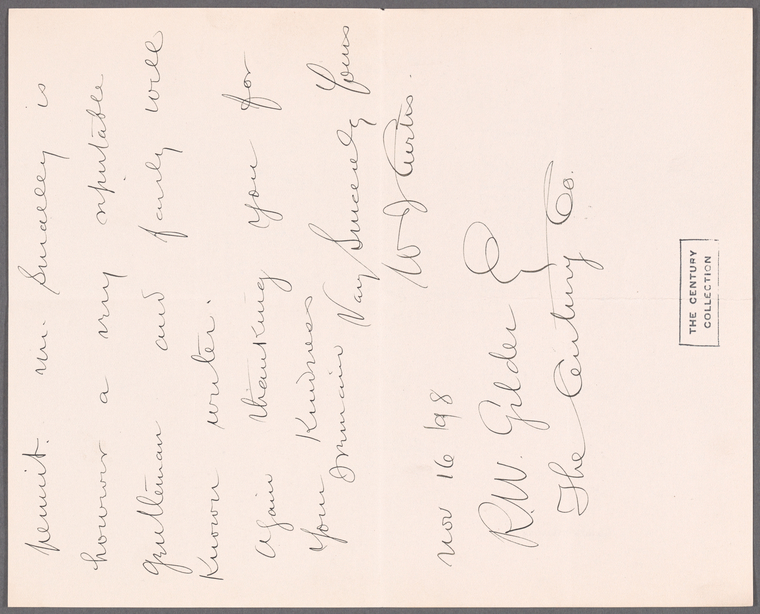 permit. Mr. Smalley is
however a very reputable
gentleman and fairly well
known writer.
Again thanking you for
your kindness
I remain Very Sincerely Yours
W J Curtis.
Nov 16 '98
R.W. Gilder E
The Century Co.
THE CENTURY
COLLECTION